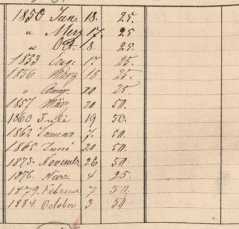 1850 Juni 18. 25.
" März 17. 25
" Oct. 8. 25.
1853 Aug. 17. 25.
1856. März 15 25.
" Aug. 20 25.
1857 März 20 50.
1860 Juli 19 50.
1863 Januar 7. 50.
1865 Juni 20 50.
1873. November 26 50.
1876. März 4 25.
1879. Februar 7 50.
1884 October 3 50